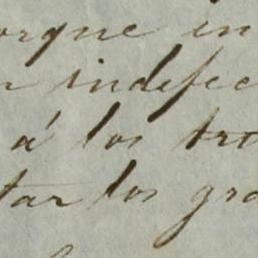 orque in
n indefec
á los tra
tar los gra